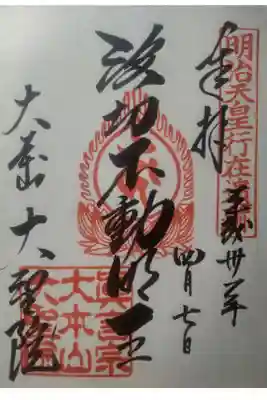 明治天皇行在
奉拝
平成卅年
四月七日
波切不動明王
大本山 大聖院
真言宗
大本山
大聖院